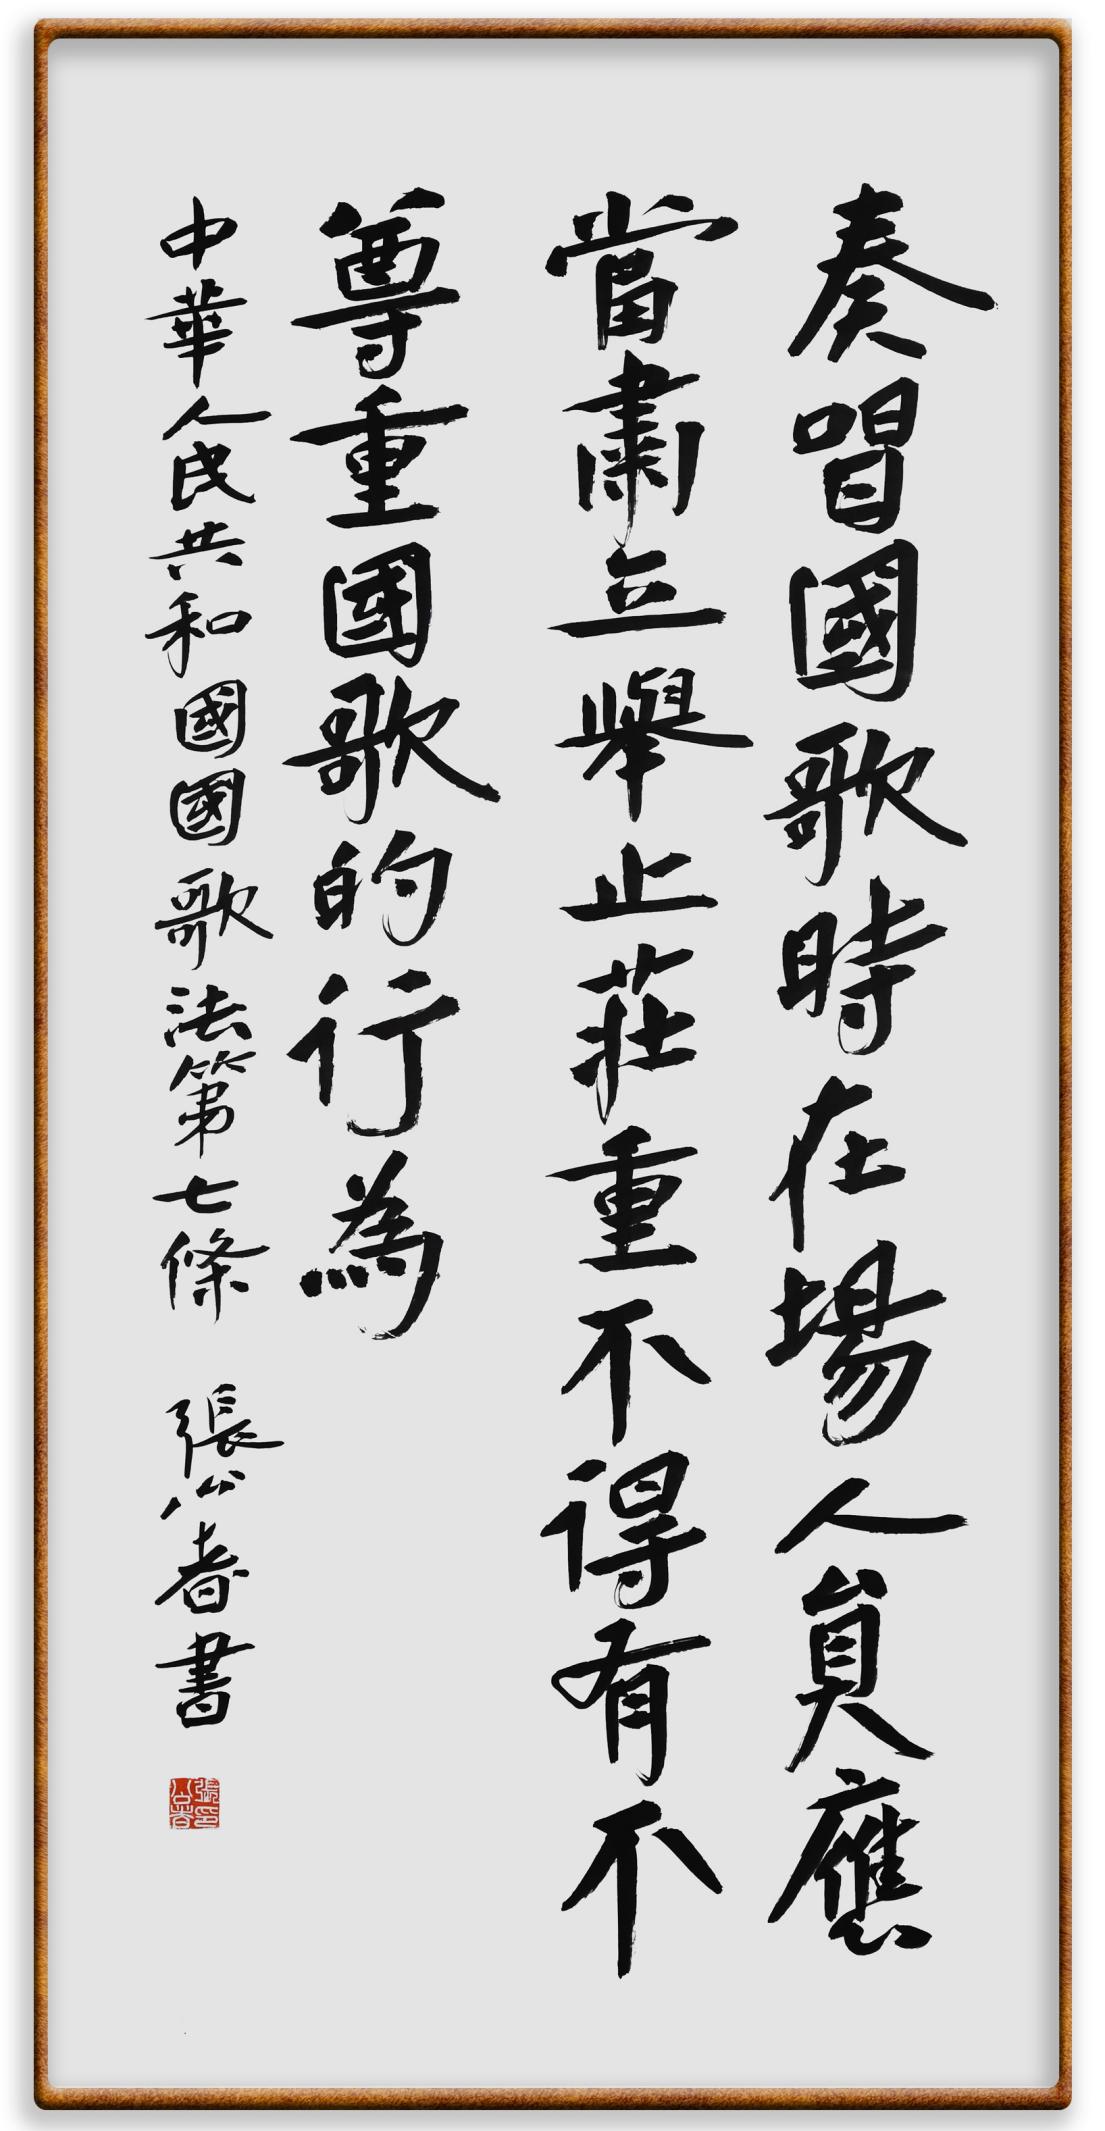 奏唱國歌時在場人員應
當肅立舉止莊重不得有不
尊重國歌的行為
中華人民共和國國歌法第七條 張公者書